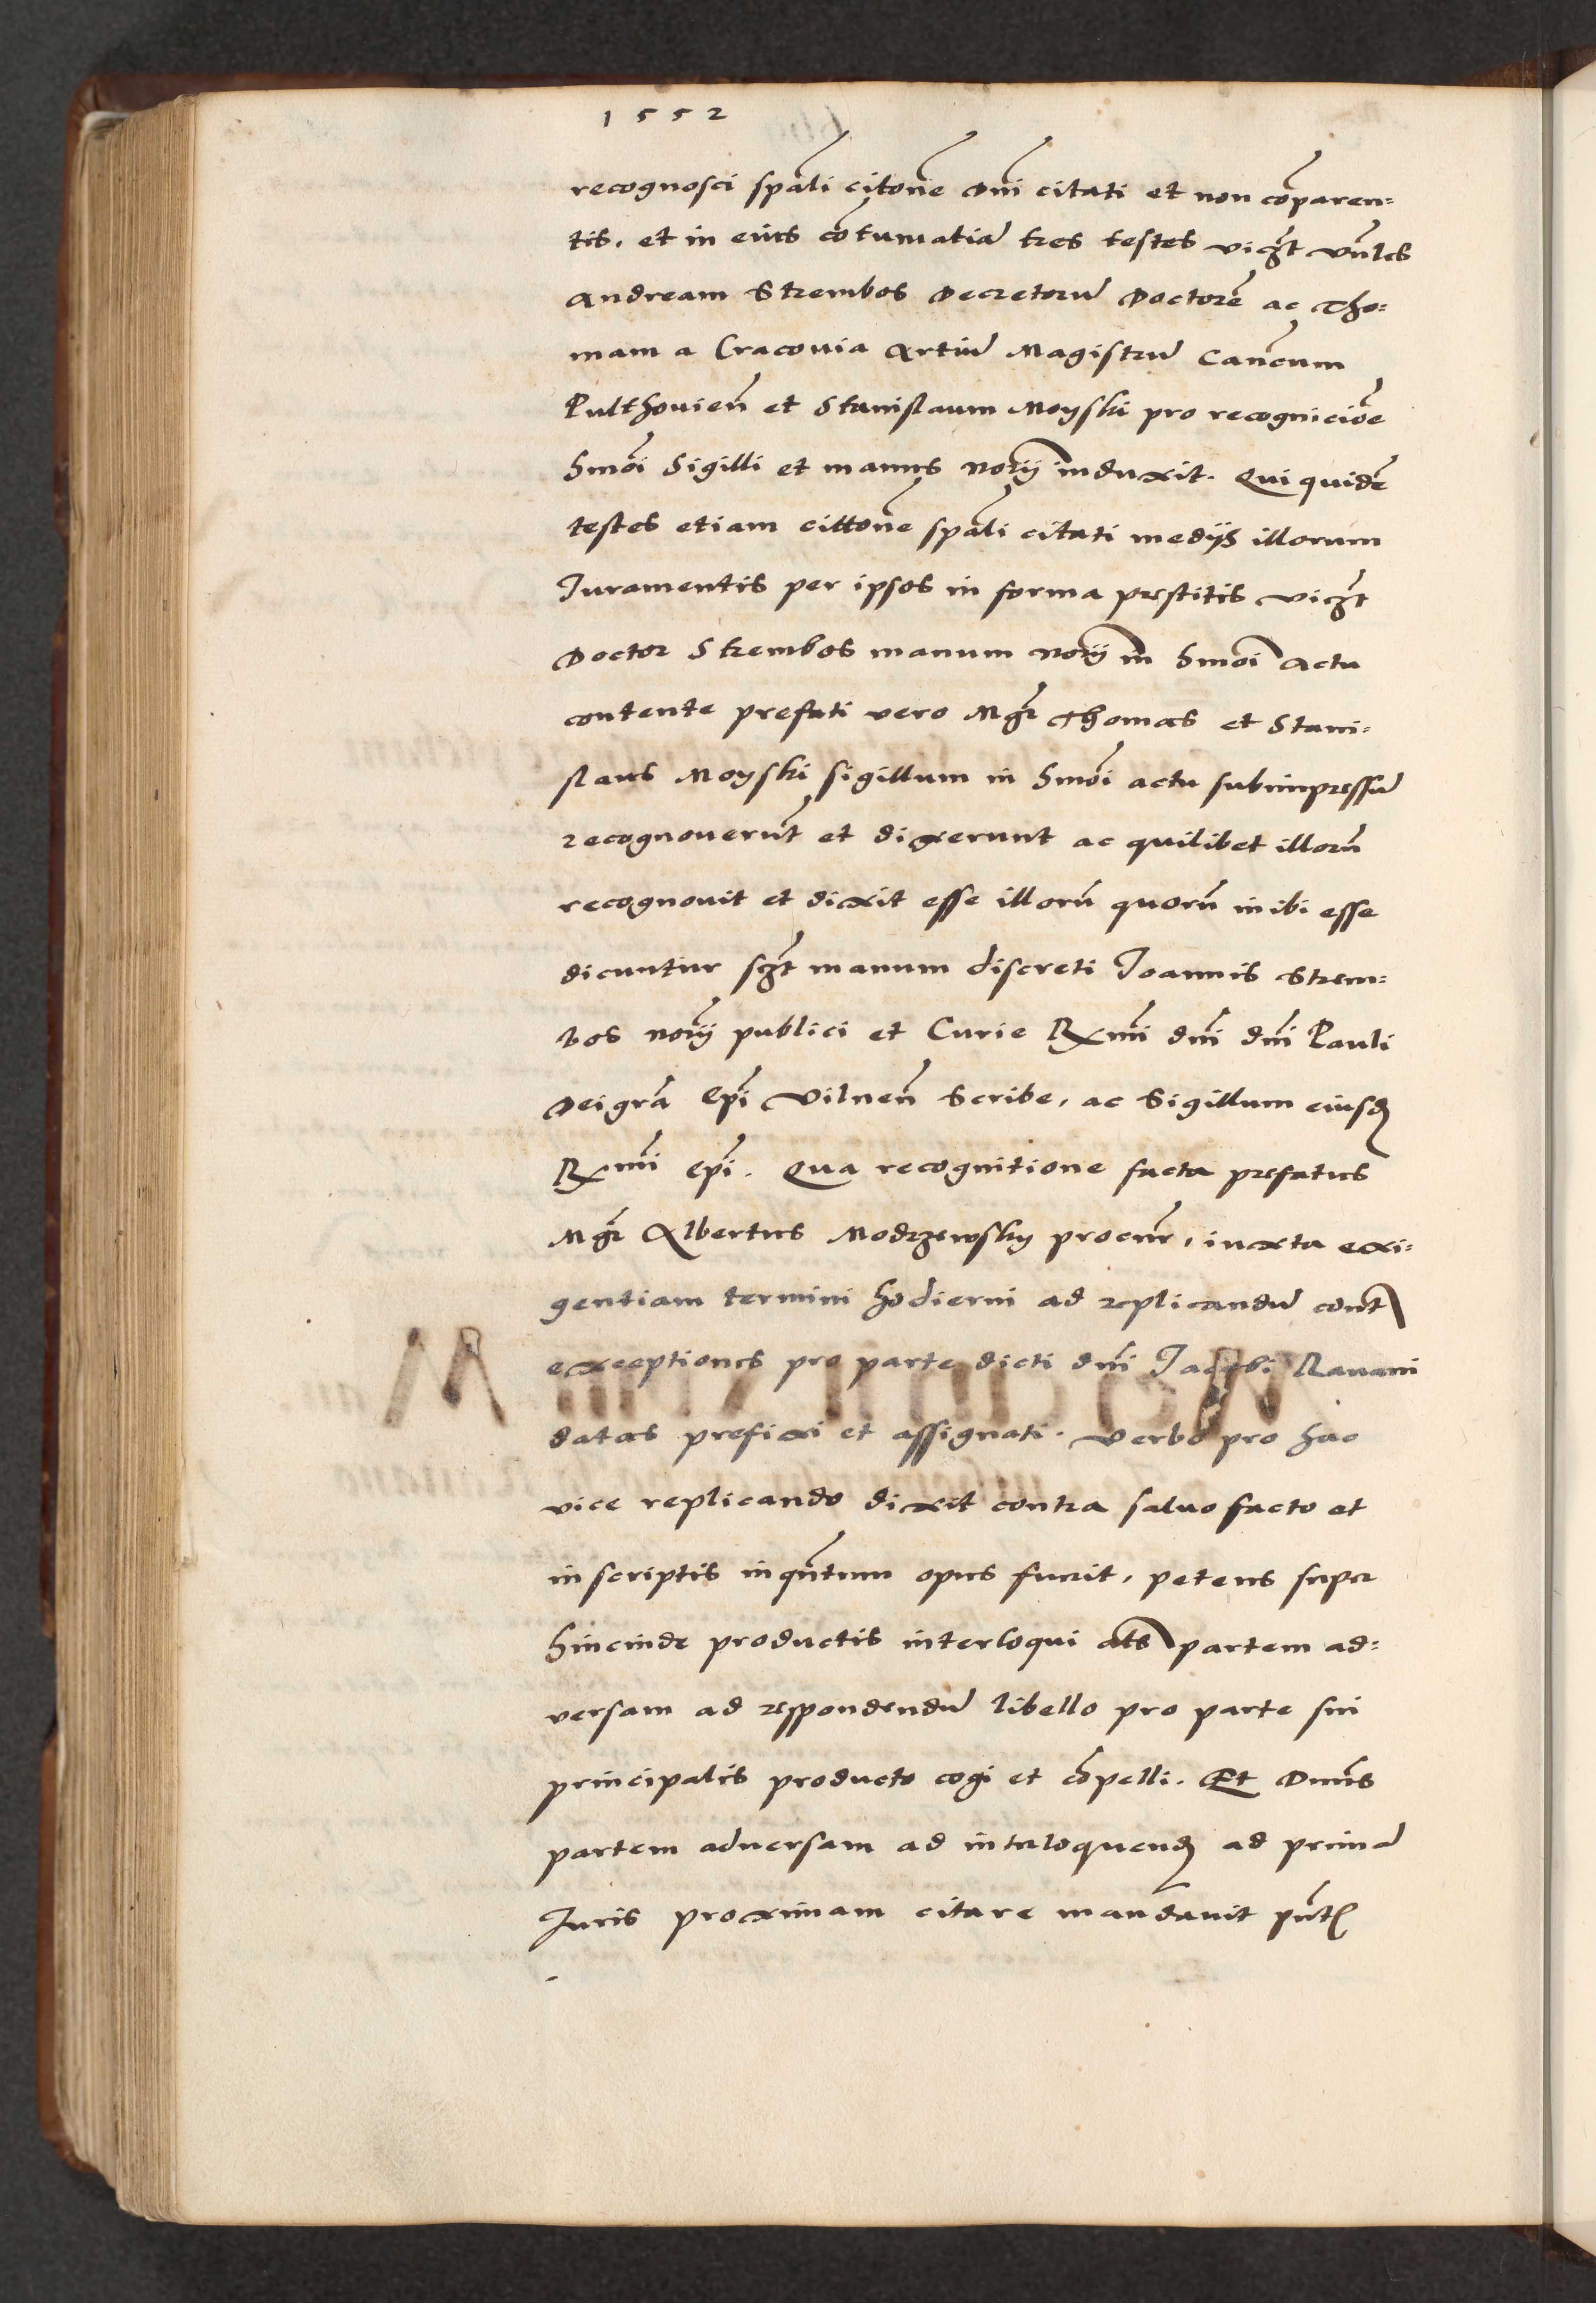 1552
recognosci spali citone Dni citati et non comparen=
tis. et in eius cotumatia tres testes viczt vnles
Andream Strembos Decretoru Doctore ac Tho=
mam a Cracouia Artiu Magistru Cancum
Pulthouien et Stanislaum Moyski pro recognicioe
Hmoi Sigilli et manus noryj induxit. Qui quide
testes etiam cittone spali citati medijs illorum
Juramentis per ipsos in forma prestitis viczt
Doctor Strembos manum noryj in Hmoi Actu
contente prefati vero Mgr Thomas et Stani=
slaus Moyski sigillum in Hmoi actu subimpressu
recognouerut et dixerunt ac quilibet illoru
recognouit et dixit esse illoru quoru inibi esse
dicuntur sczt manum discreti Joannis Strem=
bos noryj publici et Curie Rxmi dni dni Pauli
Dei gra Epi Vilnen Scribe, ac Sigillum eiusd
Rxmi Epi. Qua recognitione facta prefatus
Mgr Albertus Modrzewsky procur, iuxta exi=
gentiam termini hodierni ad replicandu cont
exceptiones pro parte dicti dni Jacobi Rauani
datas prefixi et assignati. Verbo pro hac
vice replicando dixit contra saluo facto et
in scriptis inqntum opus fuerit, petens super
hincinde productis interloqui ats partem ad=
versam ad respondendu libello pro parte sui
principalis producto cogi et copelli. Et Dnus
partem aduersam ad interloquend ad prima
Juris proximam citare mandauit pntt